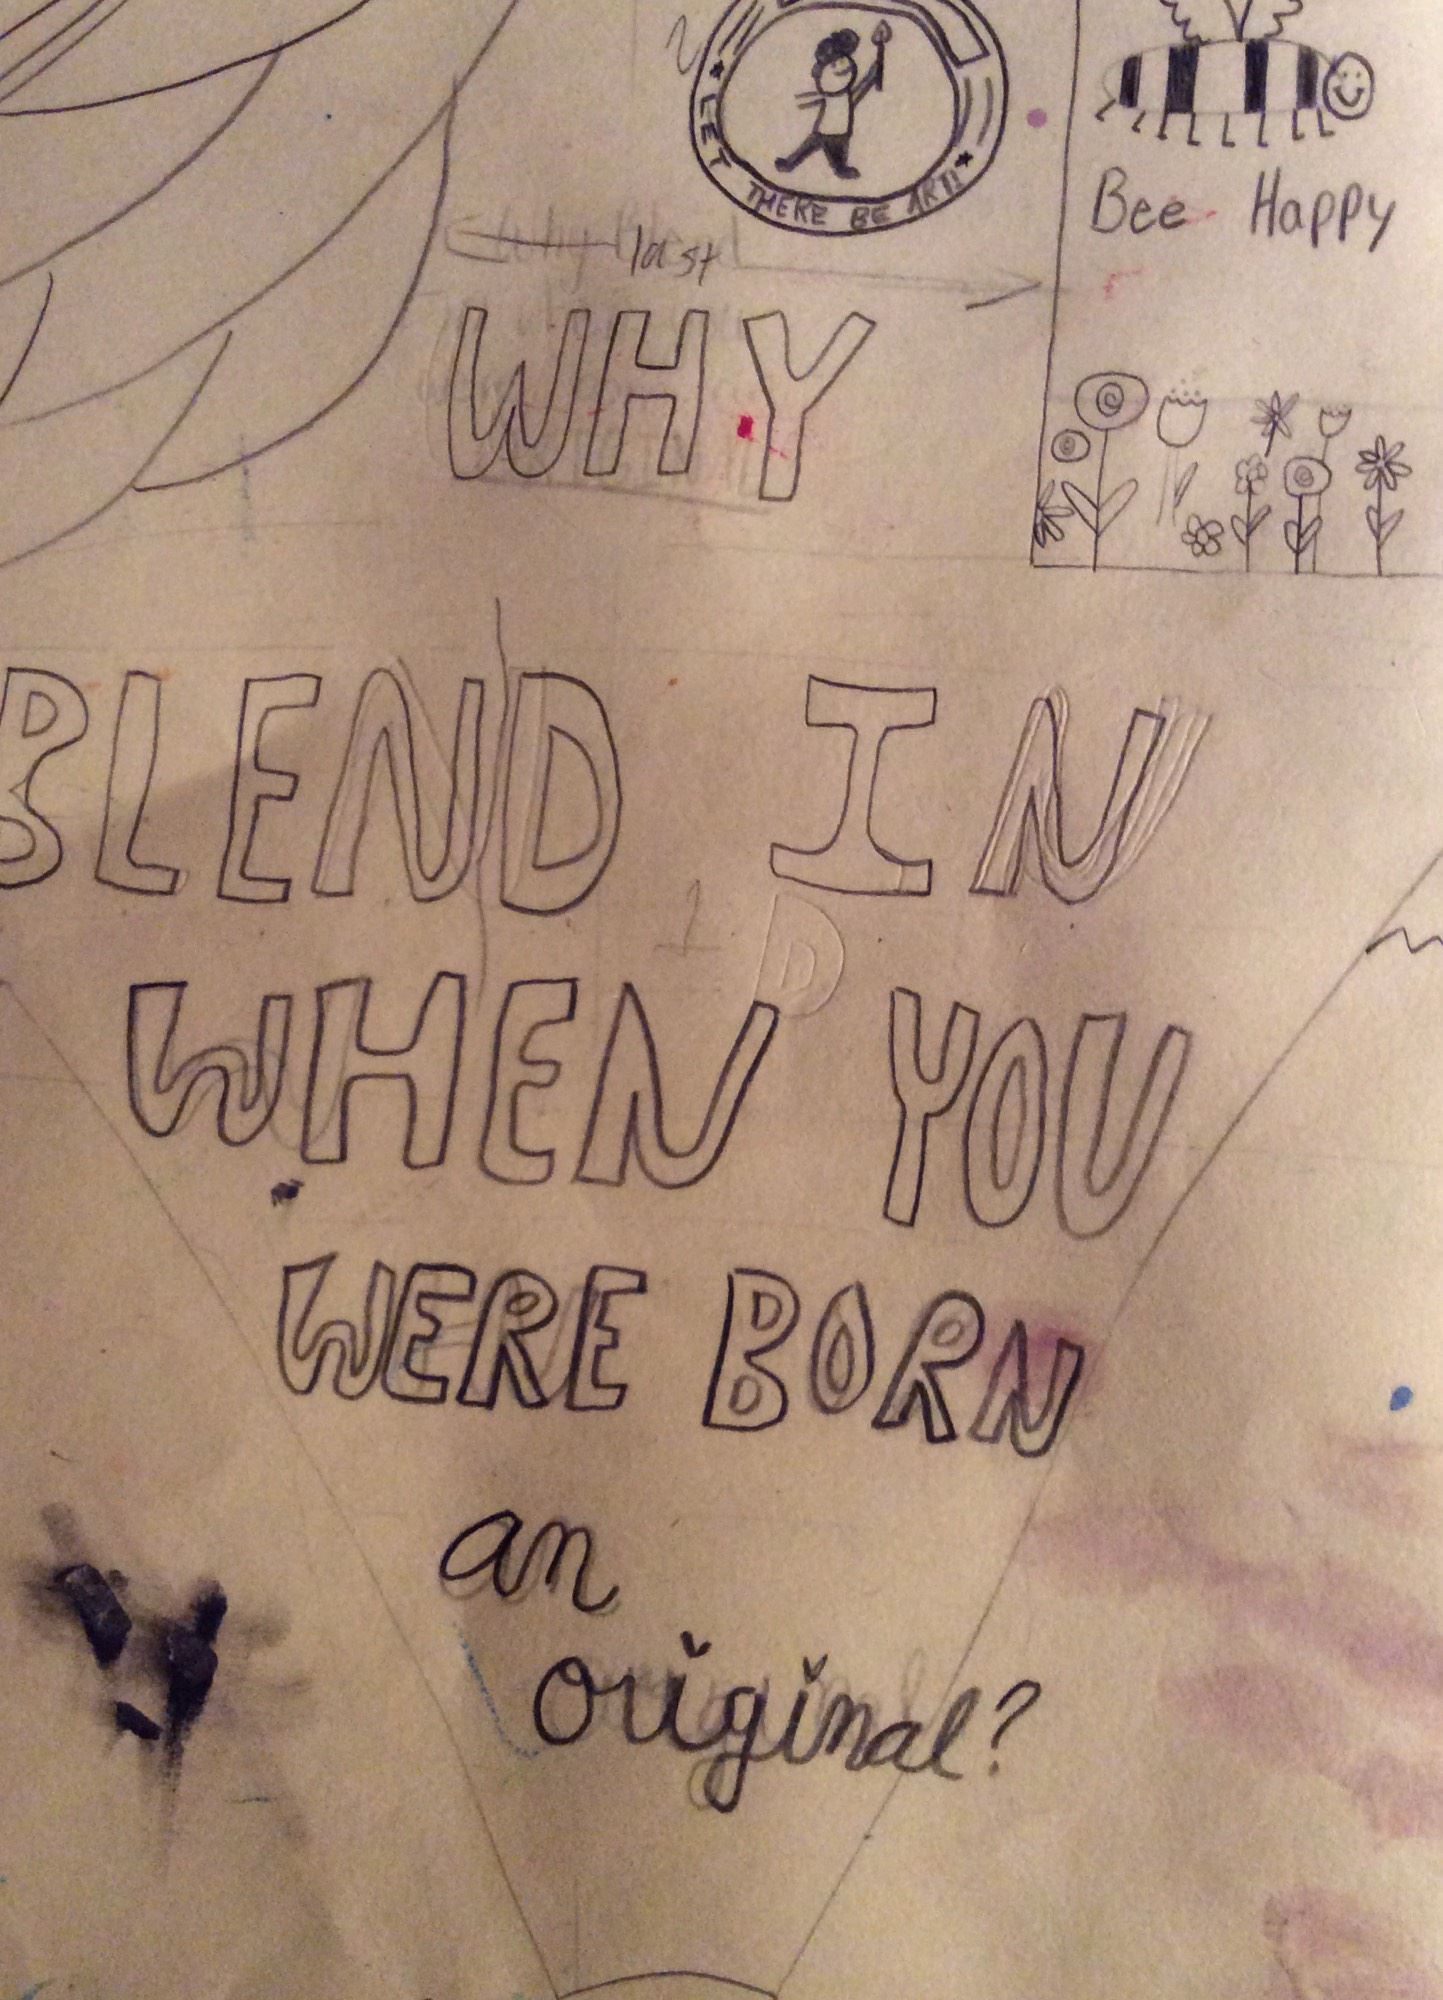 LET THERE BE ART!
Bee Happy
last
WHY
BLEND IN
WHEN YOU
WERE BORN
an
original?